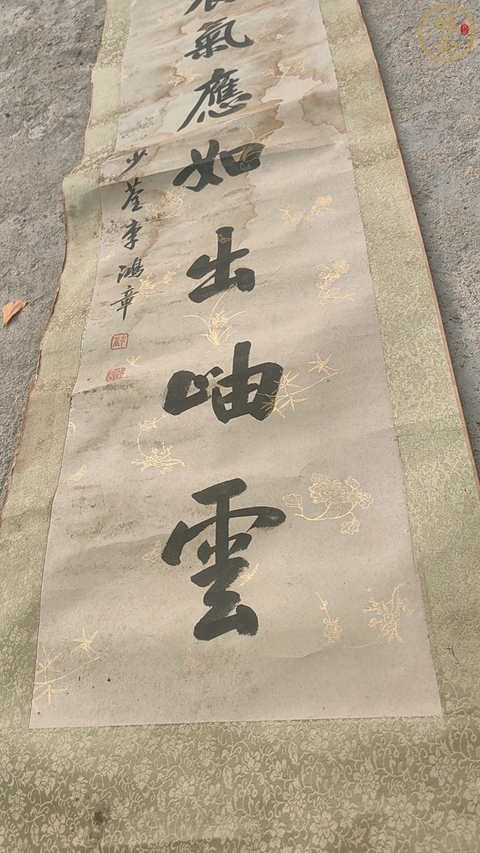 氣應如出岫雲
少荃李鴻章